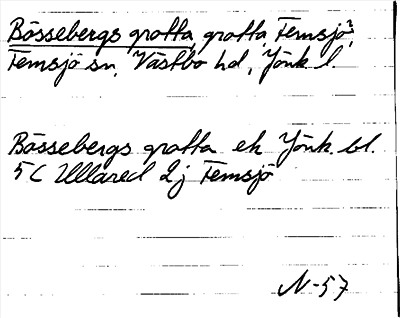 Bössebergs grotta, grotta, Femsjö²,
Femsjö sn, Västbo hd, Jönk l.
Bössebergs grotta ek Jönk. bl.
5C Ullared 2j Femsjö
N-57